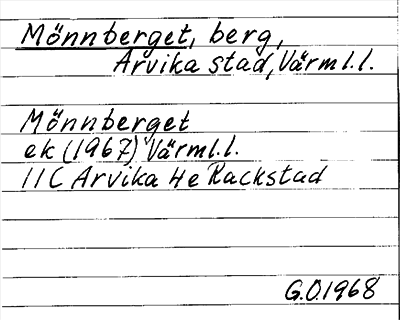 Mönnberget, berg,
Arvika stad, Värml.l.
Mönnberget
ek (1967) Värml.l.
11C Arvika 4e Rackstad
G.O.1968